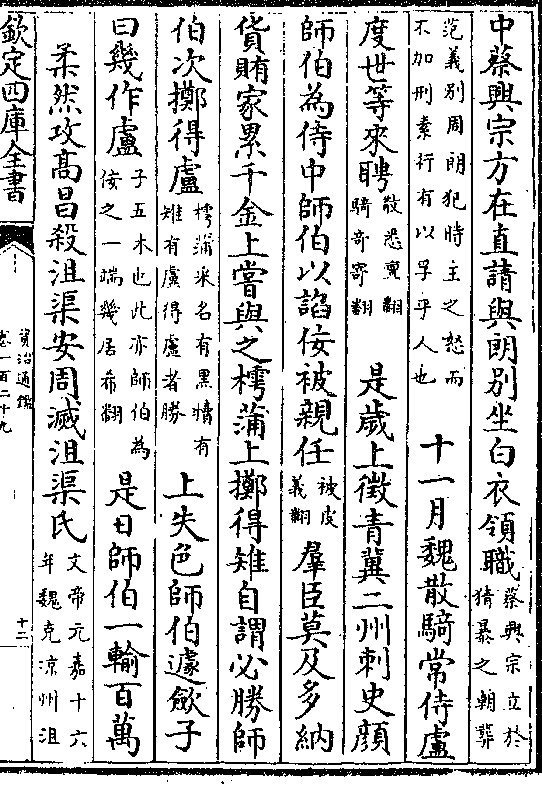 中蔡興宗方在直請與朗別坐白衣領職蔡興宗立於猜暴之朝葬
范義別周朗犯時主之怒而不加刑素行有以孚乎人也 十一月魏散騎常侍盧
度世等來聘散悉亶翻騎奇寄翻 是歲上徵青冀二州刺史顔
師伯為侍中師伯以諂佞被親任被皮義翻羣臣莫及多納
貨賄家累千金上嘗與之樗蒲上擲得雉自謂必勝師
伯次擲得盧樗蒲采名有黑犢有雉有盧得盧者勝 上失色師伯遽斂子
曰幾作盧子五木也此亦師伯為佞之一端幾居希翻 是日師伯一輸百萬
柔然攻髙昌殺沮渠安周滅沮渠氏文帝元嘉十六年魏克涼州沮
欽定四庫全書
資治通鑑
卷一百二十九
十二